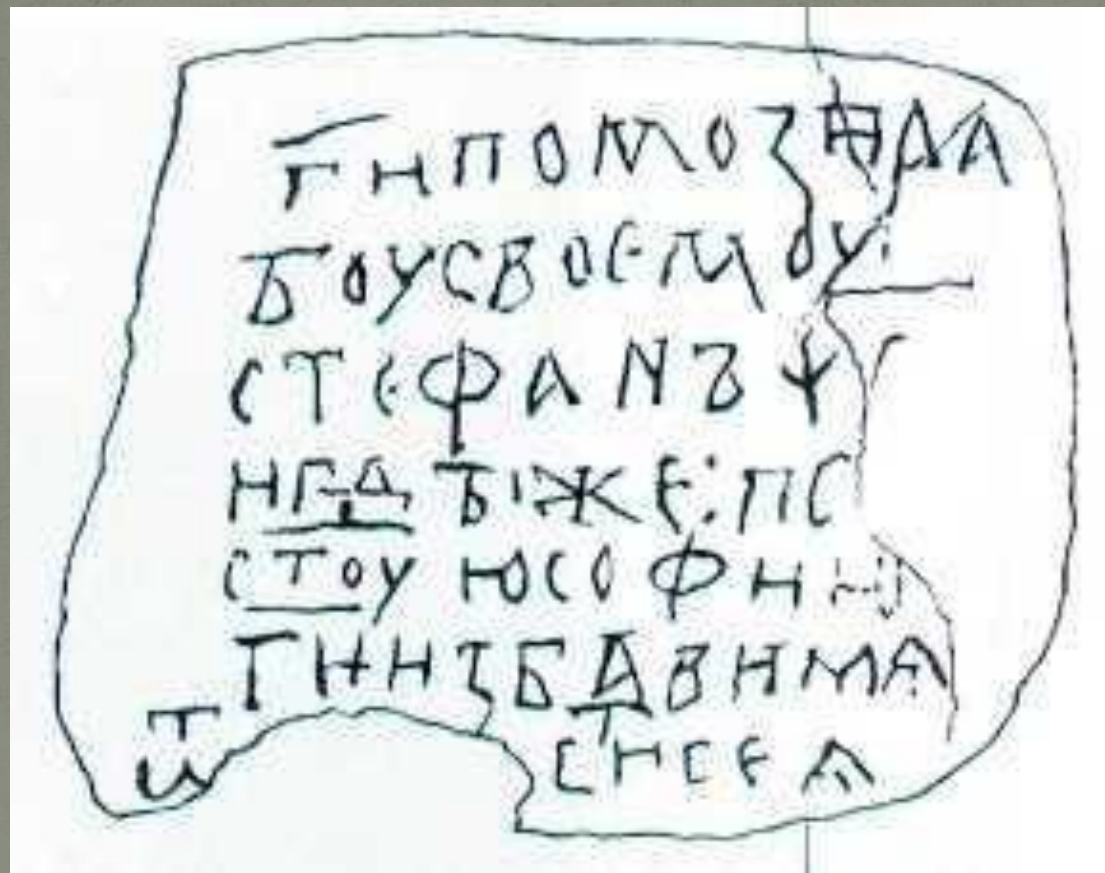 ГИПОМОЗИДА
БОУСВОЕМОУ:
СТЕФАНЪѰ
НГДꙐЖЕ:ПС
СТОУЮСОФИЮ
ГИИЗБАВИМА
СИСЕѦ